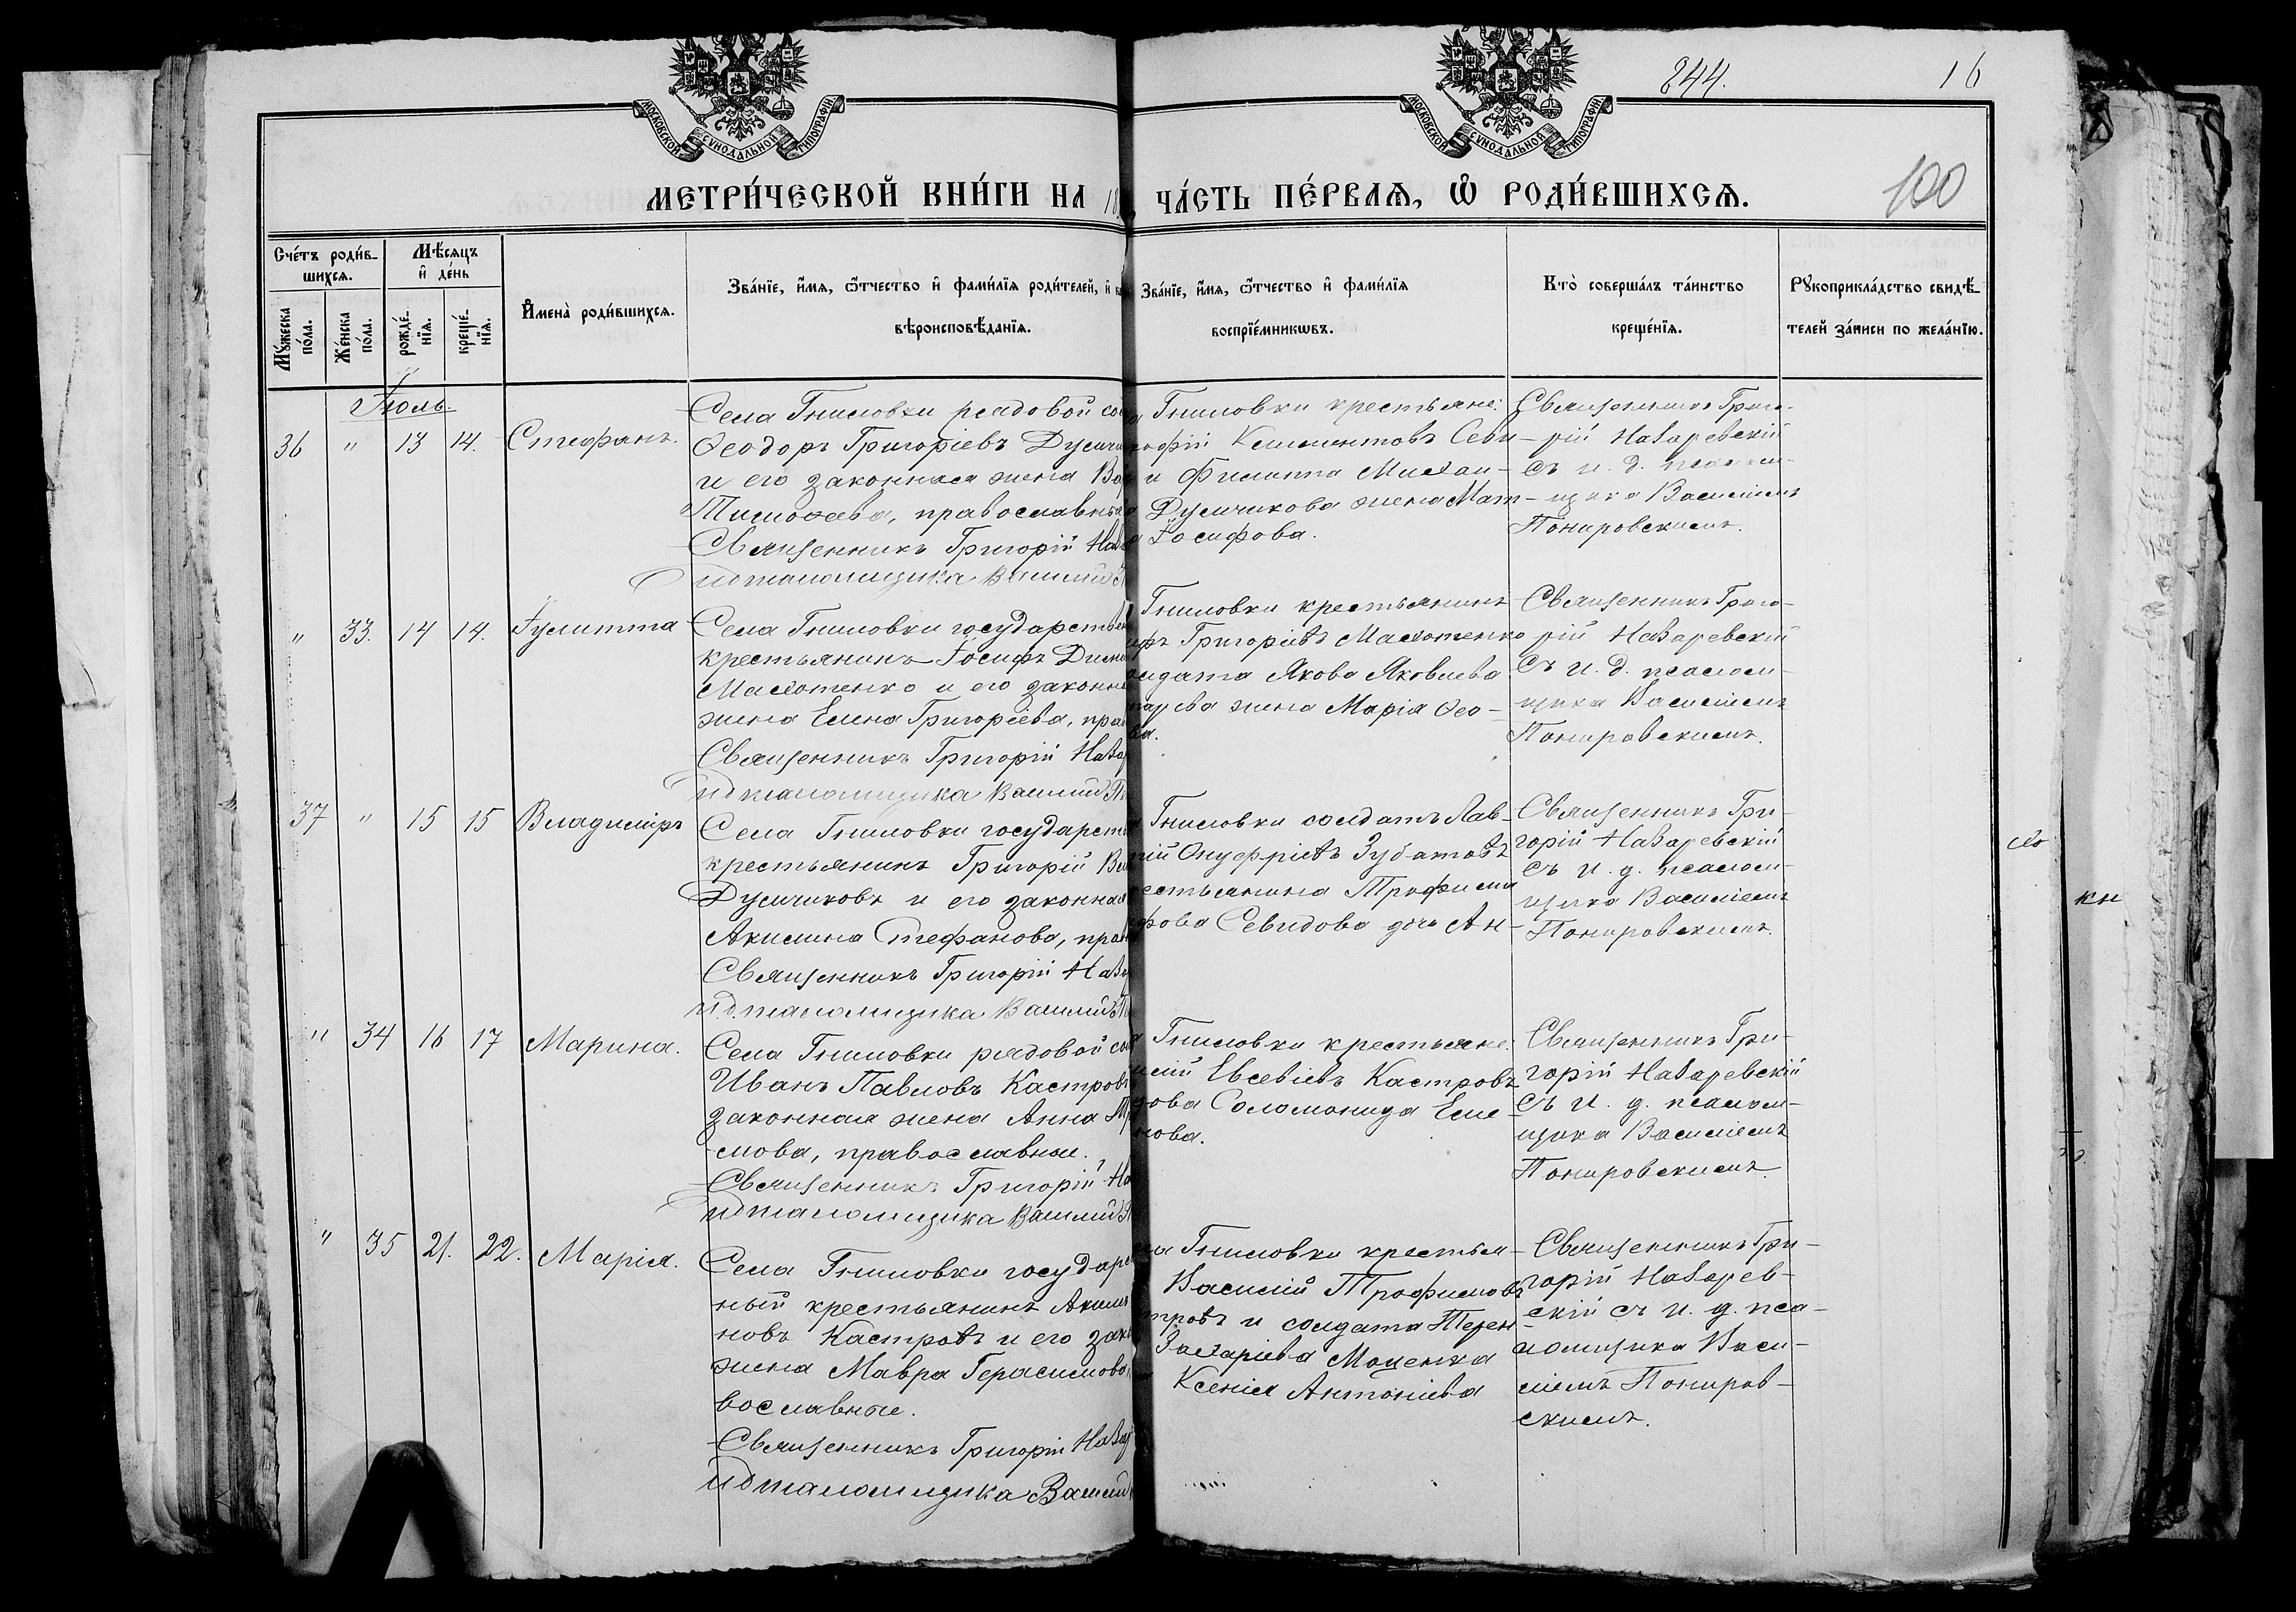 244.
16
100
МОСКОВСКОЙ СѴНОДАЛЬНОЙ ТИПОГРАФІИ
МОСКОВСКОЙ СѴНОДАЛЬНОЙ ТИПОГРАФІИ
МЕТРИ́ЧЕСКОЙ КНИ́ГИ НА 18
ЧА́СТЬ ПЕ́РВАѦ, Ѽ РОДИ́ВШИХСѦ.
Сче́тъ роди́в-
шихсѧ.
Мѣ́сѧцъ
и҆ де́нь
Мꙋ́жеска
по́ла.
Же́нска
по́ла.
рожде́-
нїѧ.
креще́-
нїѧ.
И҆мена̀ роди́вшихсѧ.
Зва́нїе, и҆́мѧ, ѻ҆́тчество и҆ фами́лїѧ роди́телей, и҆
вѣроисповѣ́данїѧ.
Зва́нїе, и҆́мѧ, ѻ҆́тчество и҆ фами́лїѧ
воспрїе́мникѡвъ.
Кто̀ соверша́лъ та́инство
креще́нїѧ.
Рꙋкоприкла́дство свидѣ́-
телей за́писи по жела́нїю.
Іюль.
36 " 13 14. Стефанъ.
Села Гниловки рядовой сол
Ѳеодоръ Григоріевъ Думчи
и его законная жена Вар
Тимоѳеева, православны
Священникъ Григорій Наз
И д псаломщика Василій П
а Гниловки крестьяне:
кофій Климентовъ Севи-
и Филиппа Михаи-
Думчикова жена Мат-
а Іосифова.
Священникъ Григо-
рій Назаревскій
съ и. д. псалом-
щика Василіемъ
Понировскимъ.
" 33. 14 14. Іулитта
Села Гниловки государствен
крестьянинъ Іосифъ Дим
Махотенко и его законн
жена Елена Григоріева, прав
Священникъ Григорій Назар
И д псаломщика Василій По
Гниловки крестьянинъ
ифъ Григоріевъ Махотенко
олдата Якова Яковлева
жена Марія Ѳео-
ва.
Священникъ Григо-
рій Назаревскій
Съ и. д. псалом-
щика Василіемъ
Понировскимъ.
37 " 15 15 Владиміръ
Села Гниловки государств
крестьянинъ Григорій
Думчиковъ и его законная
Акилина Стефанова, прав
Священникъ Григорій Назар
И.д. псаломщика Василій П
а Гниловки солдатъ Лав-
тій Онуфріевъ Зубатовъ
естьянина Трофима
фова Севидова дочь Ан-
Священникъ Гри-
горій Назаревскій
Съ и. д. псалом-
щика Василіемъ
Понировскимъ.
" 34 16 17 Марина.
Села Гниловки рядовой сол
Иванъ Павловъ Кастровъ
законная жена Анна Тр
-мова, православные.
Священникъ Григорій На
И д псаломщика Василій П
а Гниловки крестьяне:
Евсевіевъ Кастровъ
Соломонида Еме-
нова.
Священникъ Гри-
горій Назаревскій
Съ и. д. псалом-
щика Василіемъ
Понировскимъ.
" 35 21. 22. Марія.
Села Гниловки государс
ный крестьянинъ Аким
новъ Кастровъ и его зак
жена Мавра Герасимова,
вославные.
Священникъ Григорій Назар
И д псаломщика Василій
ла Гниловки крестья-
Василій Трофимовъ
тровъ и солдата Терен-
Захаріева Моценка
Ксенія Антоніева
Священникъ Гри-
горій Назарев-
скій съ и. д. пса-
ломщика Васи-
ліемъ Пониров-
скимъ.
кн